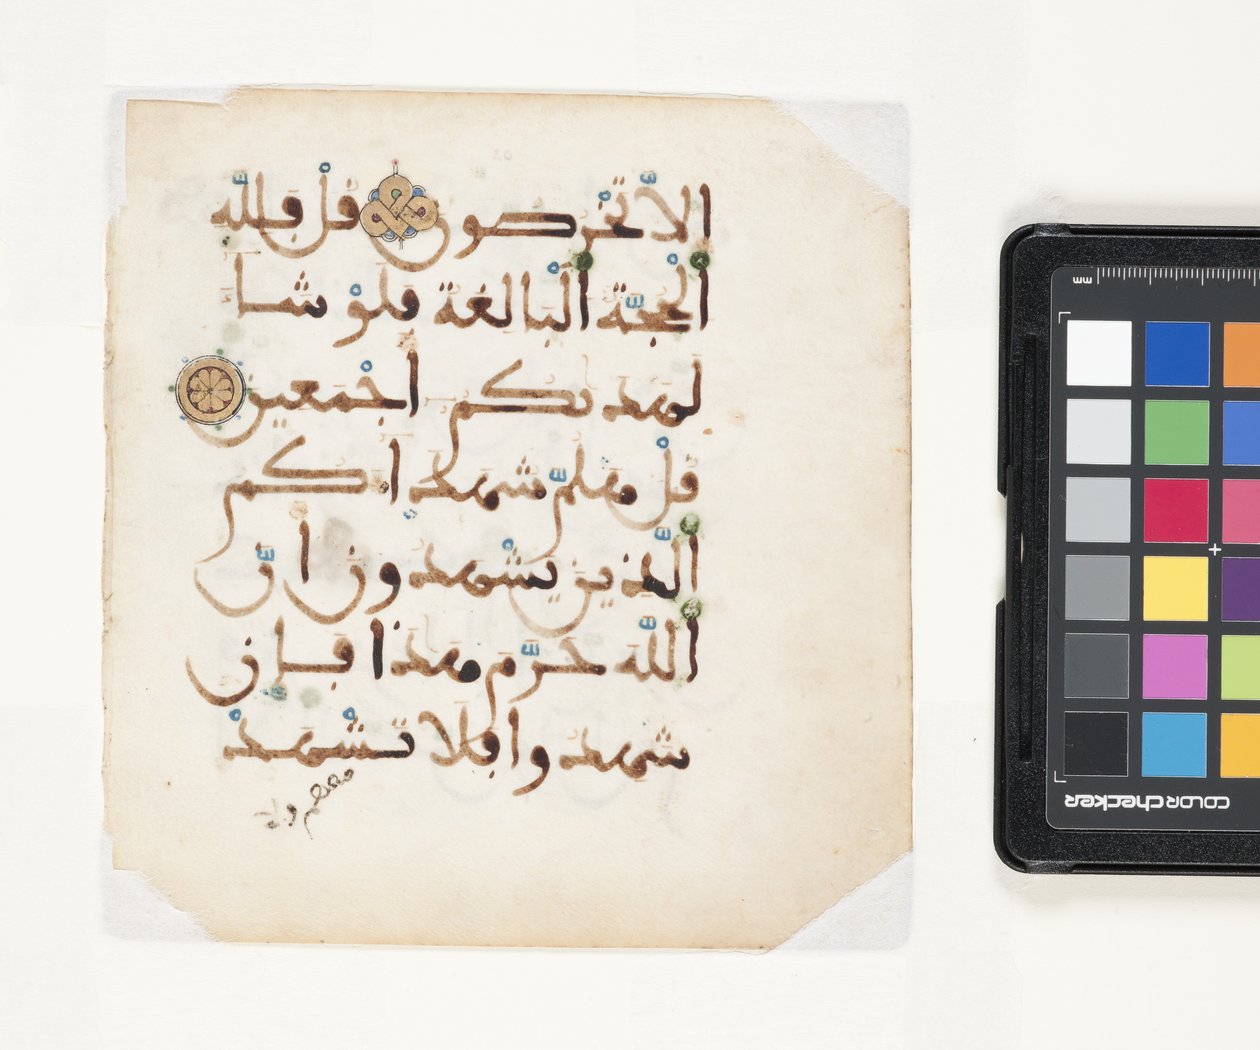 الا تَخْرُصون قُلْ فَلِلّه
الْحُجّة الْبالغة فلَوْ شا
لهديكم أجْمَعين
قُلْ هلُمّ شُهدا كم
الّذين يشْهدون أنّ
اللّه حَرّمَ هذا فإن
شهدوا فلا تشْهدْ
معهم ولا
mm
colorchecker